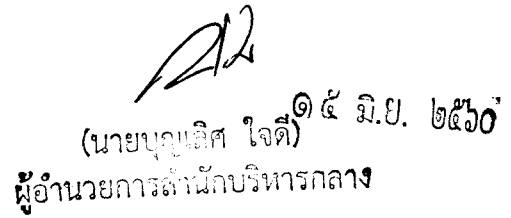 (นายบุญเลิศ ใจดี) ๑๕ มิ.ย. ๒๕๖๐
ผู้อำนวยการสำนักบริหารกลาง